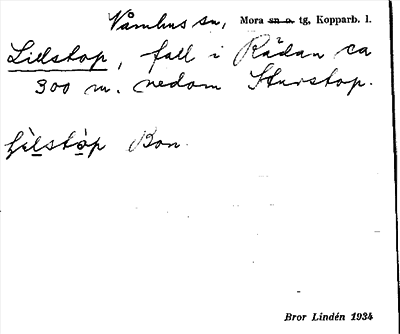 Våmhus sn, Mora sn o. tg, Kopparb. l.
Lillstop, fall i Rådan ca
300 m. nedom Sturstop.
Bon.
Bror Lindén 1934